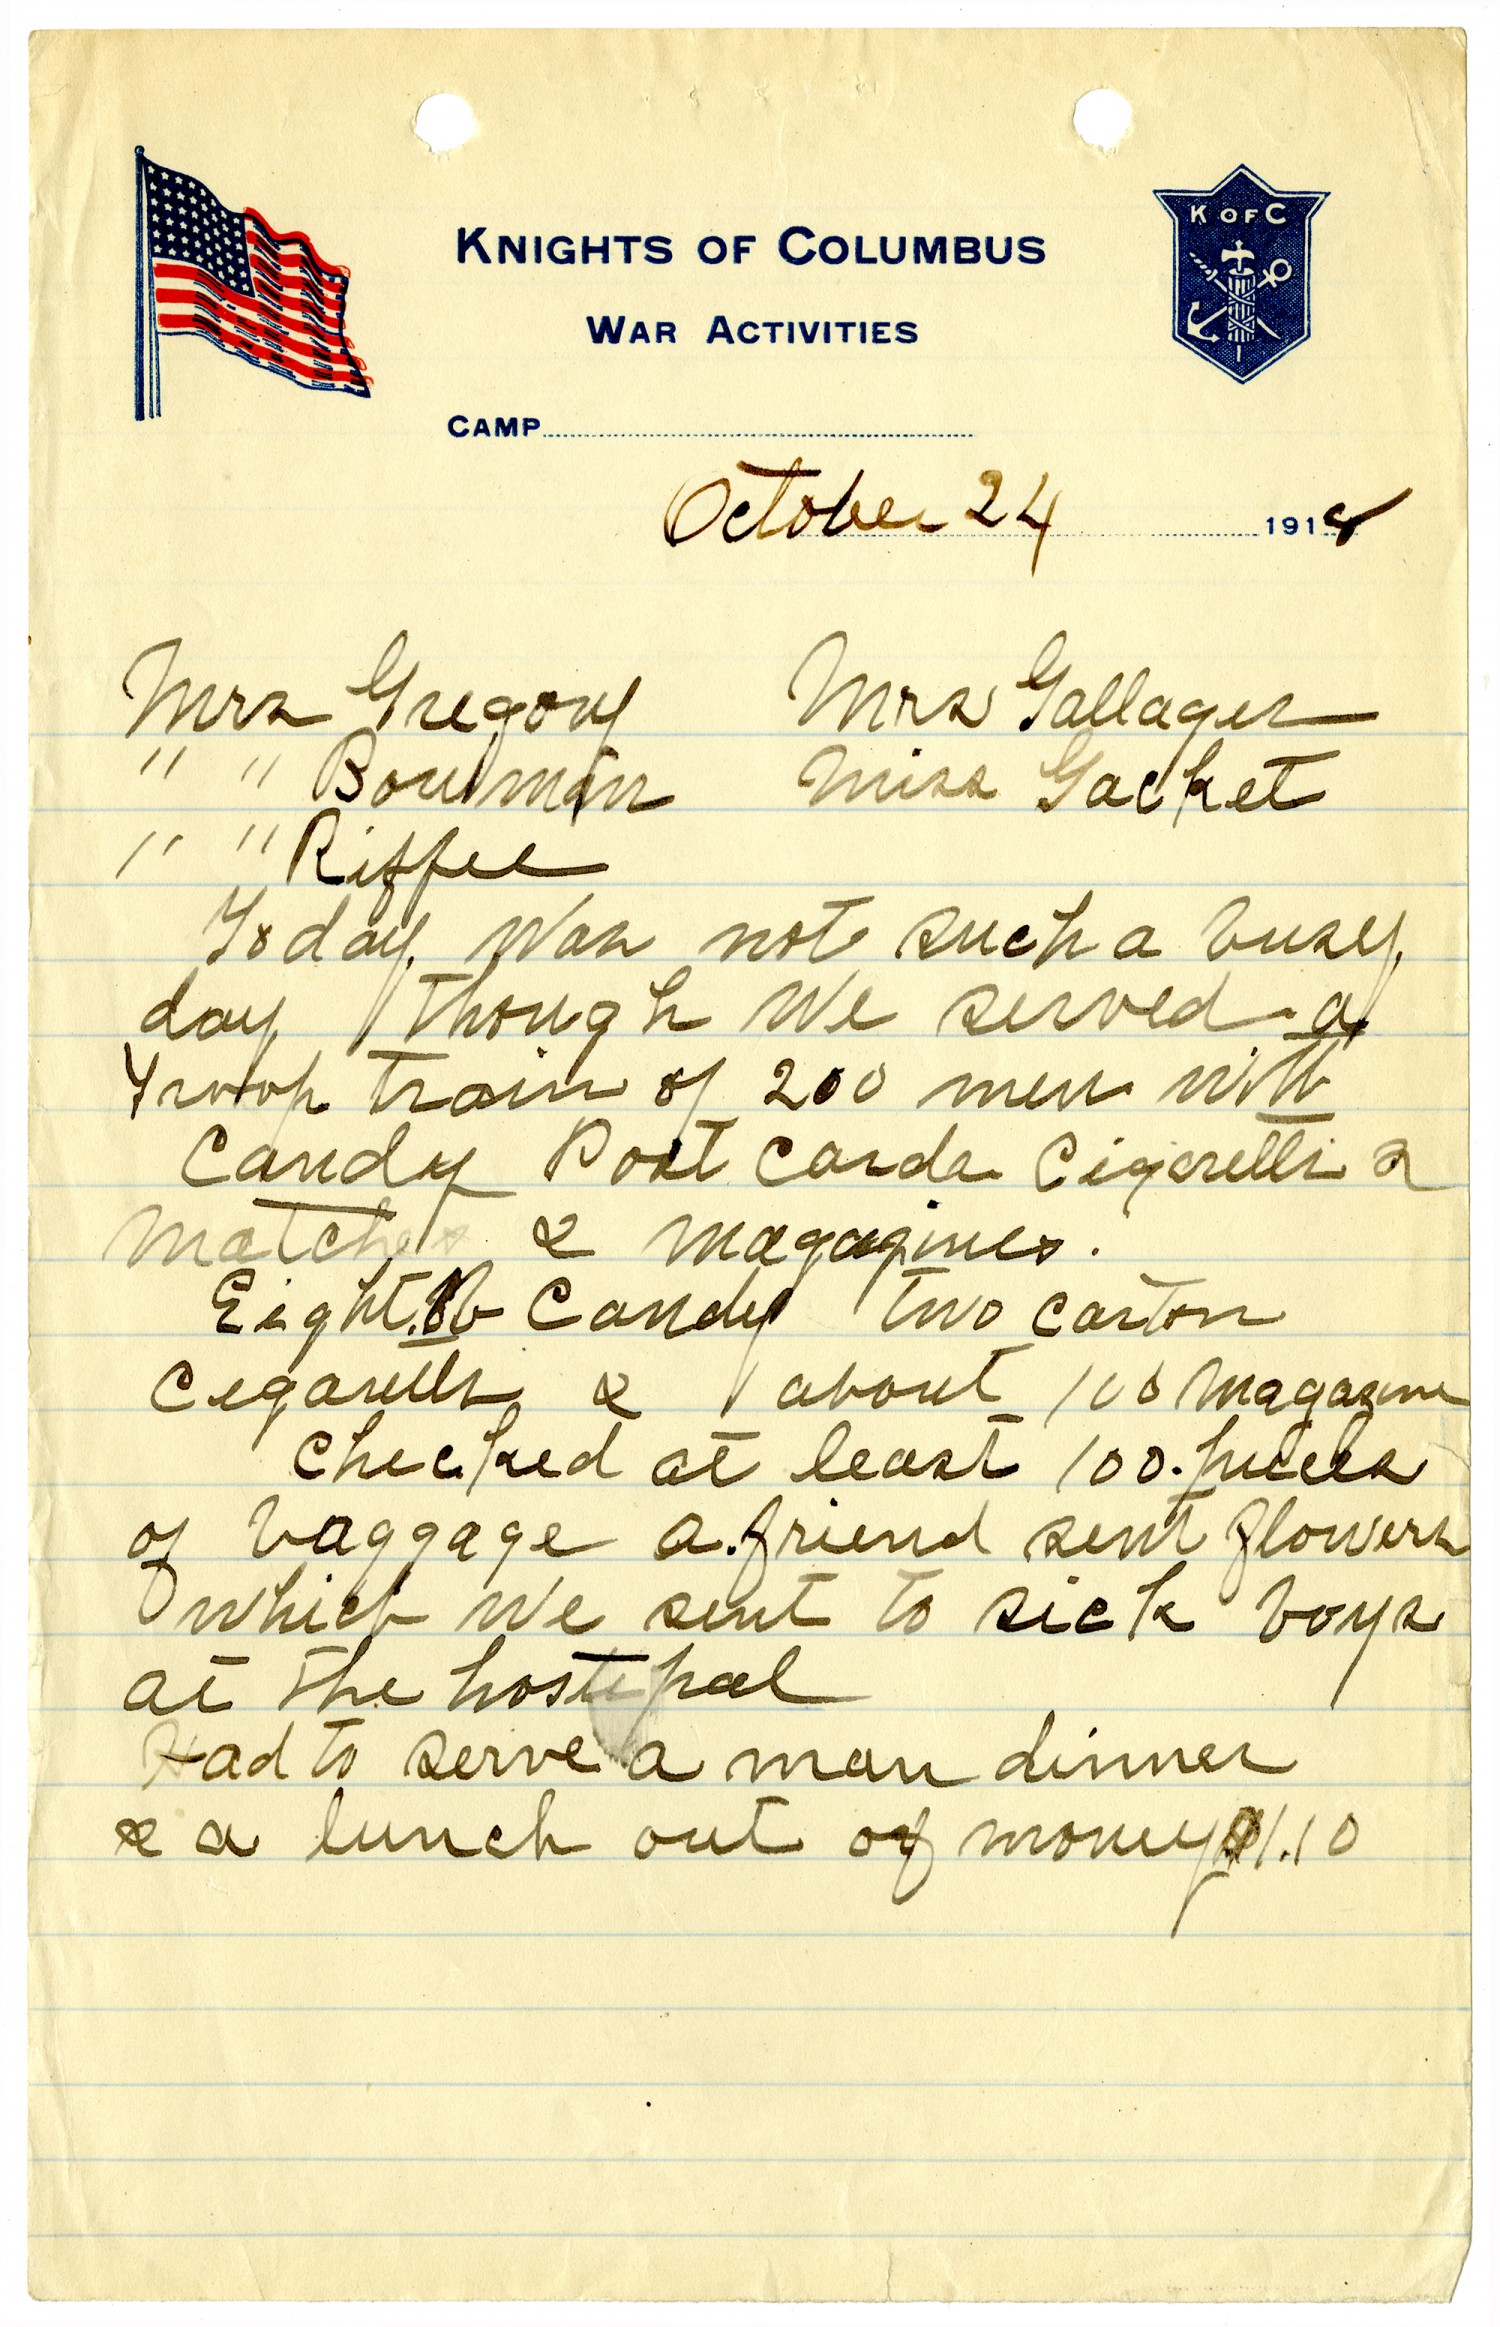 K OF C
KNIGHTS OF COLUMBUS
WAR ACTIVITIES
CAMP
October 24 1918
Mrs Gregory Mrs Gallager
" " Bowman Miss Gacket
" " Riffee
Today was not such a busy
day though we served a
Troop train of 200 men with
Candy Post Cards Cigaretts &
Matches & Magazines.
Eight lb Candy two carton
Cegaretts & about 100 Magazine
checked at least 100 pieces
of baggage a friend sent flowers
which we sent to sick boys
at the hostipal
Had to serve a man dinner
& a lunch out of money $1.10